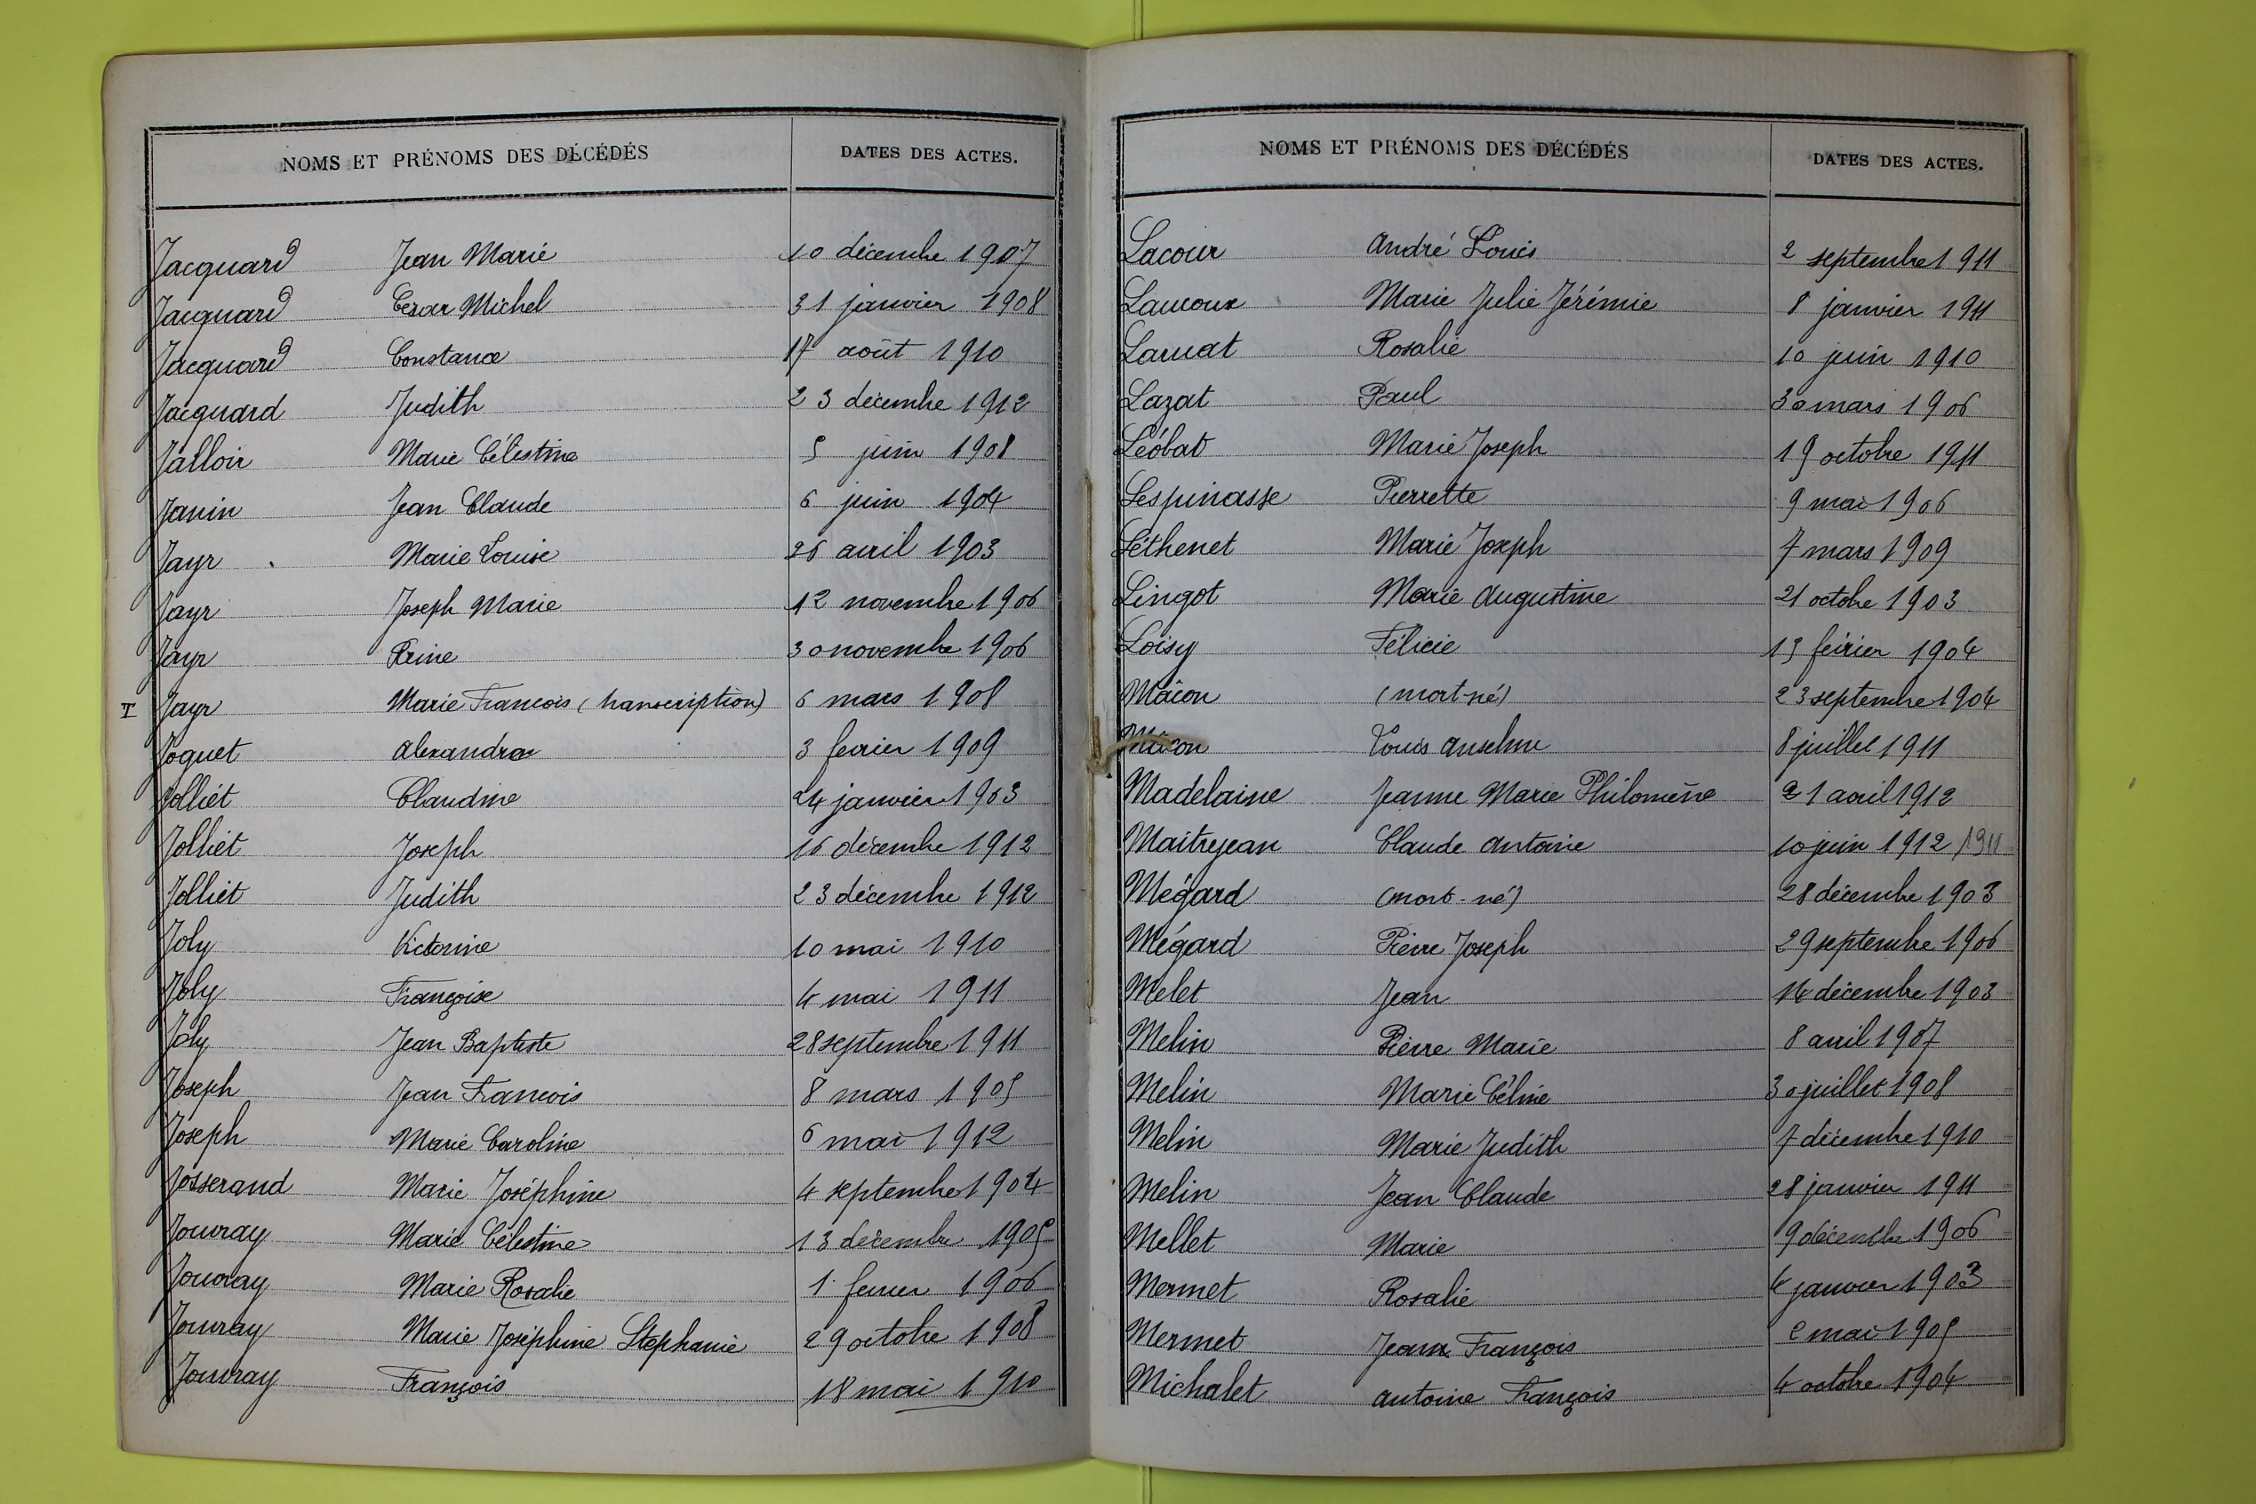 NOMS ET PRÉNOMS DES DÉCÉDÉS DATES DES ACTES.
Jacquard Jean Marie 10 décembre 1907
Jacquard Cesar Michel 31 janvier 1908
Jacquard Constance 17 août 1910
Jacquard Judith 23 décembre 1912
Jalloir Marie Célestine 5 juin 1908
Janin Jean Claude 6 juin 1904
Jayr Marie Louise 26 avril 1903
Jayr Joseph Marie 12 novembre 1906
Jayr Reine 30 novembre 1906
I Jayr Marie Francois (transcription) 6 mars 1908
Joguet Alexandra 3 fevrier 1909
Jolliet Claudine 24 janvier 1903
Jolliet Joseph 16 décembre 1912
Jolliet Judith 23 décembre 1912
Joly Victorine 10 mai 1910
Joly Françoise 4 mai 1911
Joly Jean Baptiste 28 septembre 1911
Joseph Jean Francois 8 mars 1905
Joseph Marie Caroline 6 mai 1912
Josserand Marie Joséphine 4 septembre 1904
Jouvray Marie Célestine 13 décembre 1905
Jouvray Marie Rosalie 1 fevrier 1906
Jouvray Marie Joséphine Stephanie 29 octobre 1908
Jouvray François 18 mai 1910
NOMS ET PRÉNOMS DES DÉCÉDÉS DATES DES ACTES.
Lacour André Louis 2 septembre 1911
Lamoux Marie Julie Jérémie 8 janvier 1911
Laruat Rosalie 10 juin 1910
Lazat Paul 30 mars 1906
Léobat Marie Joseph 19 octobre 1911
Lespinasse Pierrette 9 mai 1906
Léthenet Marie Joseph 7 mars 1909
Lingot Marie Augustine 21 octobre 1903
Loisy Félicie 15 février 1904
Mâcon (mort-né) 23 septembre 1904
Mâcon Louis Anselme 8 juillet 1911
Madelaine Jeanne Marie Philomène 21 avril 1912
Maitrejean Claude Antoine 10 juin 1912 / 1911
Mégard (mort-né) 28 décembre 1903
Mégard Pierre Joseph 29 septembre 1906
Melet Jean 14 décembre 1903
Melin Pierre Marie 8 avril 1907
Melin Marie Céline 30 juillet 1908
Melin Marie Judith 7 décembre 1910
Melin Jean Claude 28 janvier 1911
Mellet Marie 9 décembre 1906
Mermet Rosalie 4 janvier 1903
Mermet Jean François 2 mai 1905
Michalet Antoine François 4 octobre 1904